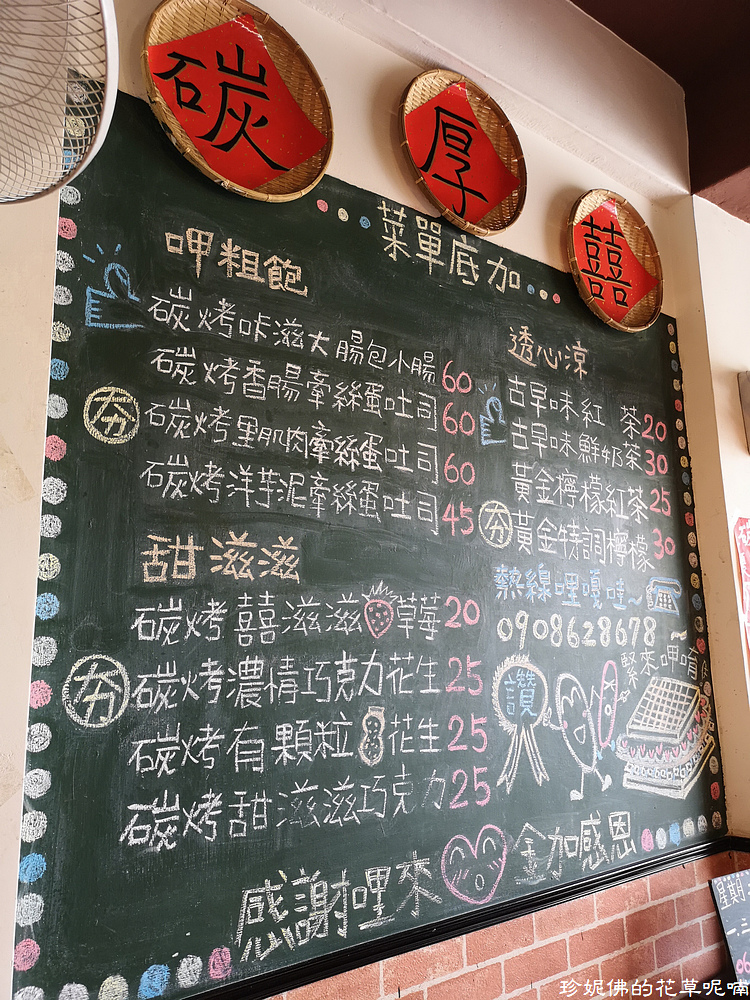 碳 厚 囍
菜單底加...
呷粗飽
碳烤咔滋大腸包小腸60
碳烤香腸牽絲蛋吐司60
夯 碳烤里肌肉牽絲蛋吐司60
碳烤洋芋泥牽絲蛋吐司45
甜滋滋
碳烤囍滋滋草莓20
夯 碳烤濃情巧克力花生25
碳烤有顆粒花生25
碳烤甜滋滋巧克力25
透心涼
古早味紅茶20
古早味鮮奶茶30
黃金檸檬紅茶25
夯 黃金特調檸檬30
熱線哩嘎哇~
0908628678~
緊來呷唷
讚
感謝哩來 金加感恩
珍妮佛的花草呢喃